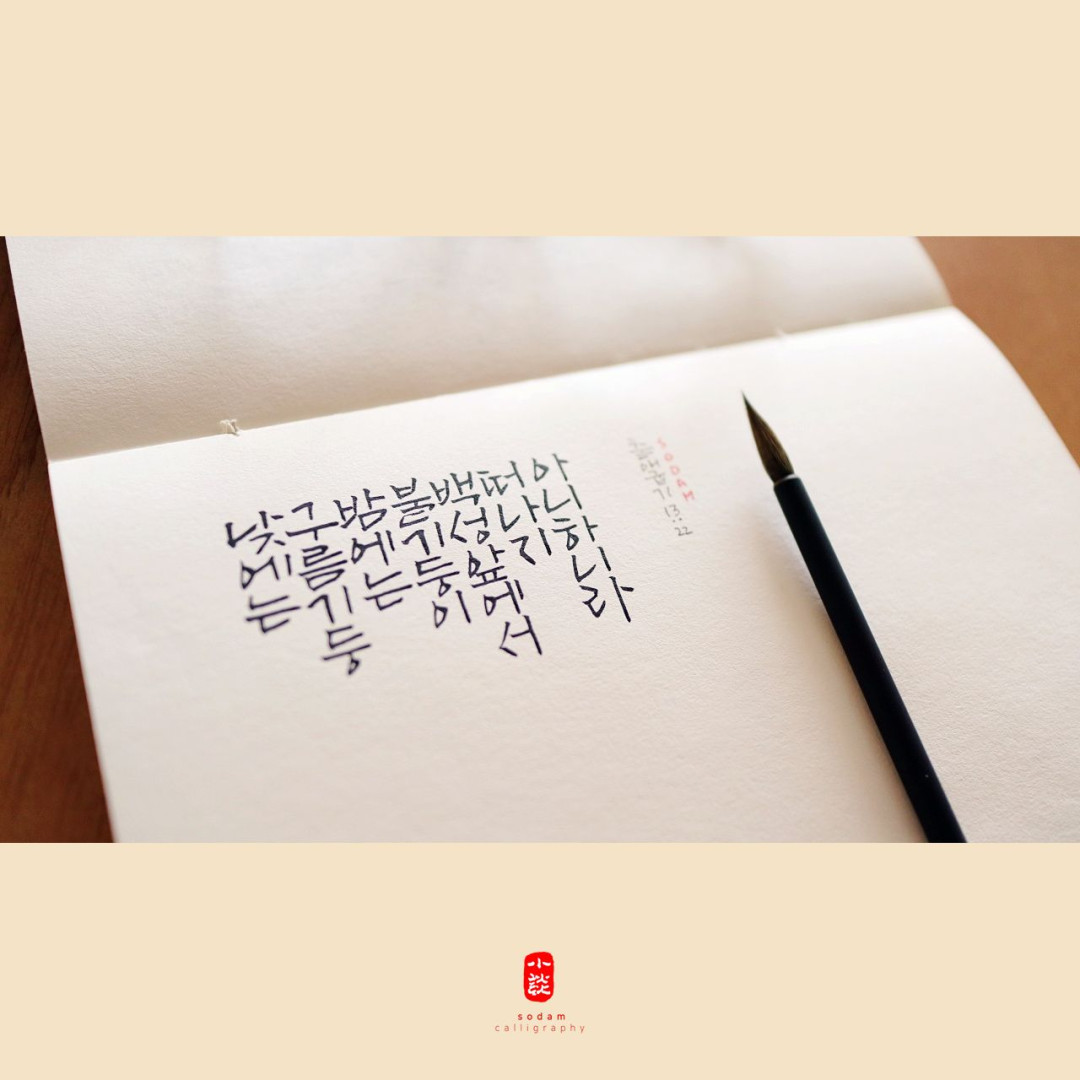 낮에는
구름기둥
밤에는
불기둥이
백성앞에서
떠나지
아니하니라
출애굽기 13:22
SODAM
小
sodam
calligraphy